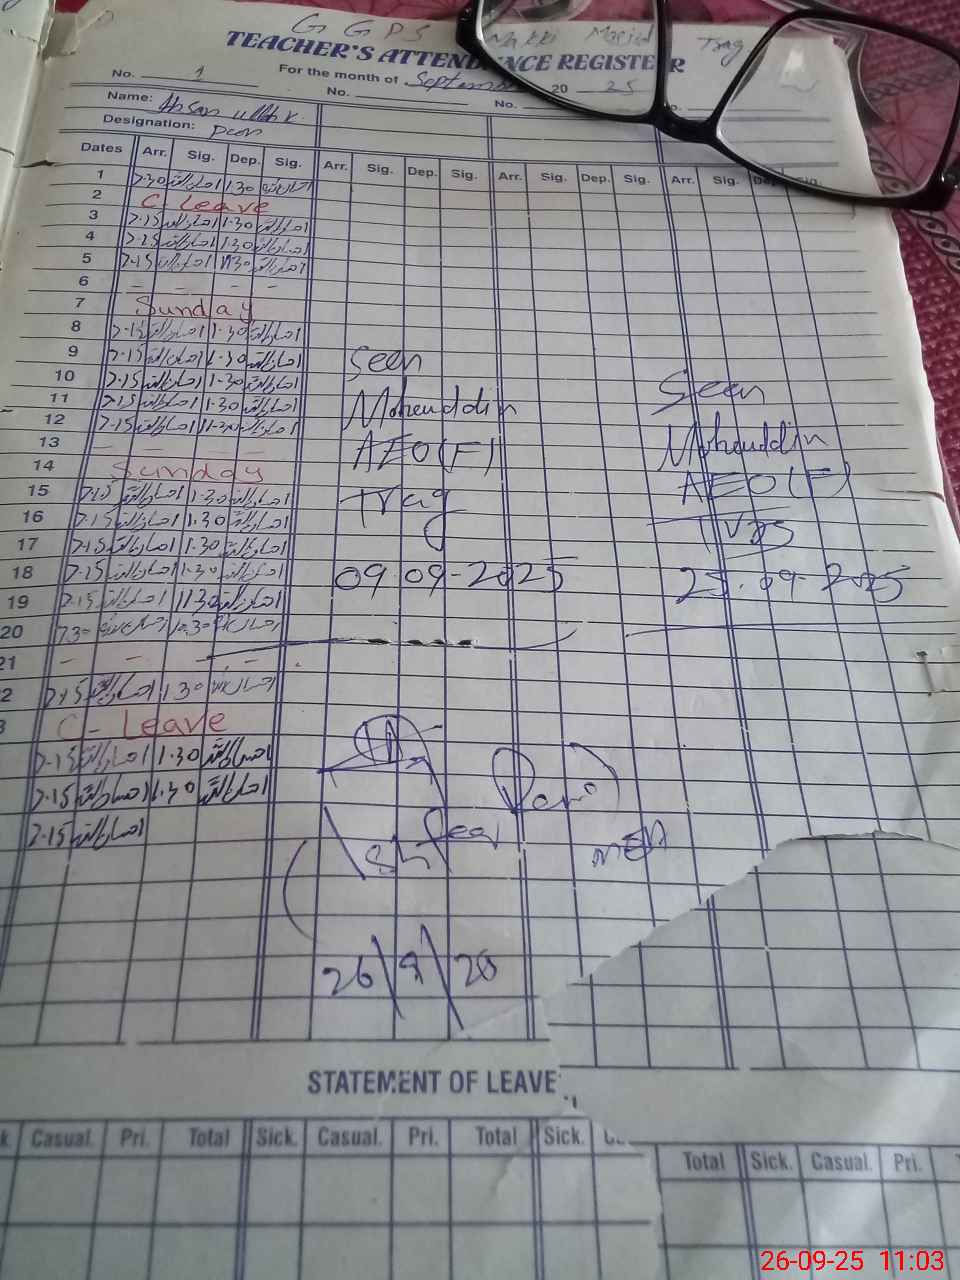 G G P S Makki Masjid Trag
TEACHER'S ATTENDENCE REGISTER
No. 1 For the month of September 20 25
No. No.
Name: Ahsan ullah
Designation: peon
Dates Arr. Sig. Dep. Sig. Arr. Sig. Dep. Sig. Arr. Sig. Dep. Sig. Arr. Sig. Dep. Sig.
1 7.30 احسان اللہ 1.30 احسان اللہ
2 C Leave
3 7.15 احسان اللہ 1.30 احسان اللہ
4 7.15 احسان اللہ 1.30 احسان اللہ
5 7.15 احسان اللہ 11.30 احسان اللہ
6 - - - -
7 Sunday
8 7.15 احسان اللہ 1.30 احسان اللہ
9 7.15 احسان اللہ 1.30 احسان اللہ
10 7.15 احسان اللہ 1.30 احسان اللہ
11 7.15 احسان اللہ 1.30 احسان اللہ
12 7.15 احسان اللہ 11.30 احسان اللہ
13 - - - -
14 Sunday
15 7.15 احسان اللہ 1.30 احسان اللہ
16 7.15 احسان اللہ 1.30 احسان اللہ
17 7.15 احسان اللہ 1.30 احسان اللہ
18 7.15 احسان اللہ 1.30 احسان اللہ
19 7.15 احسان اللہ 1130 احسان اللہ
20 730 احسان اللہ احسان اللہ
21 - - - -
2 7.15 احسان اللہ 1.30 احسان اللہ
3 C - Leave
7.15 احسان اللہ 1.30 احسان اللہ
7.15 احسان اللہ 1.30 احسان اللہ
7.15 احسان اللہ
Seen
Moheuddin
AEO(F)
Trag
09.09-2025
Seen
Moheuddin
AEO(F)
Trag
25.09-2025
MEA
26/9/20
STATEMENT OF LEAVE
k. Casual. Pri. Total Sick. Casual. Pri. Total Sick.
Total Sick. Casual. Pri.
26-09-25 11:03